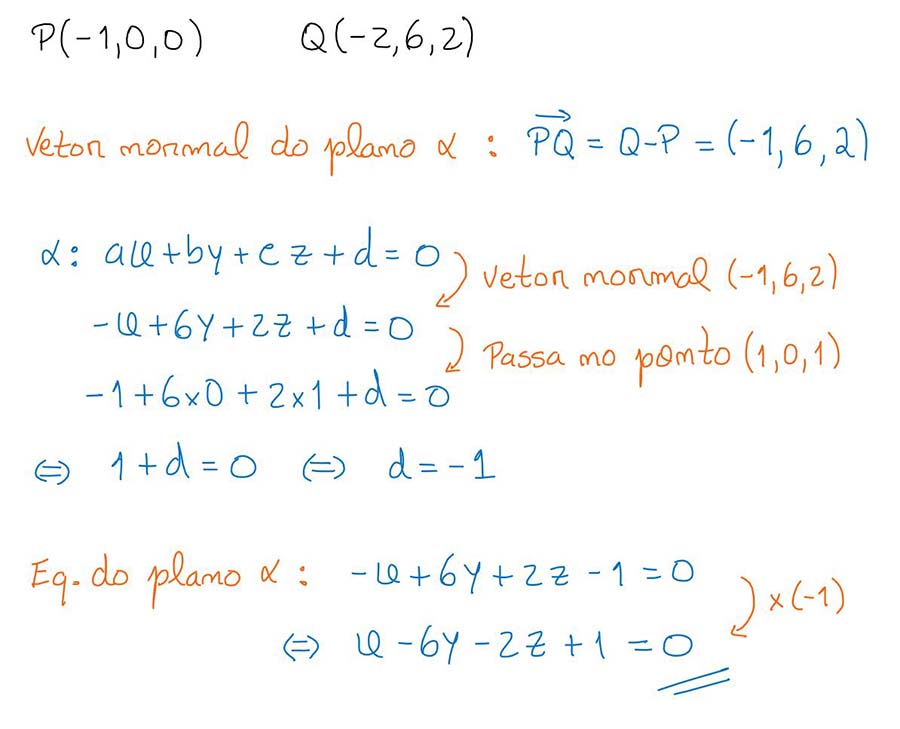 P(-1,0,0) Q(-2,6,2)
Vetor normal do plano α : P⃗Q⃗ = Q-P = (-1,6,2)
α: ax+by+cz+d=0
vetor normal (-1,6,2)
-x+6y+2z+d=0
Passa no ponto (1,0,1)
-1+6×0+2×1+d=0
⇔ 1+d=0 ⇔ d=-1
Eq. do plano α : -x+6y+2z-1=0
×(-1)
⇔ x-6y-2z+1=0